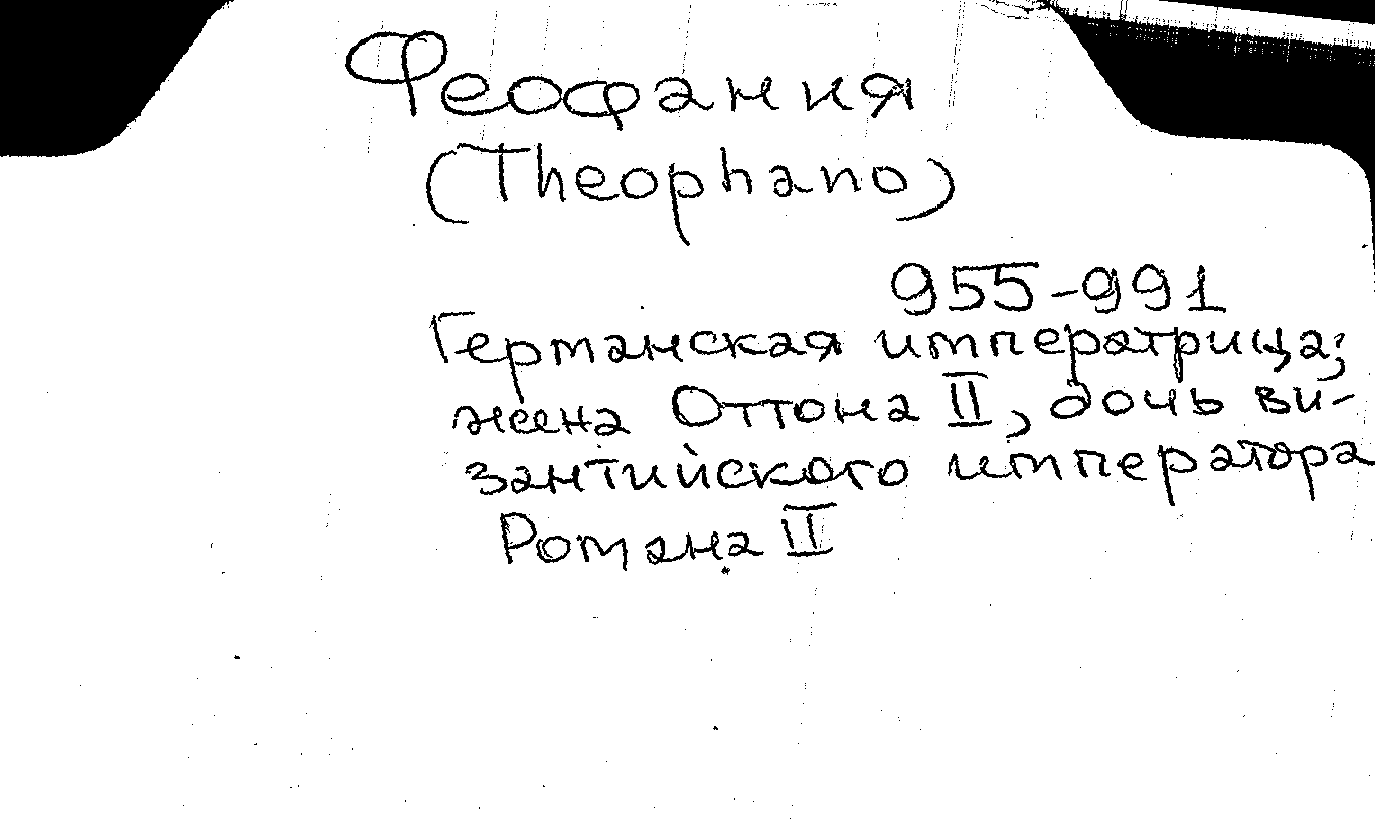 Феофания
(Theophano)
955-991
Германская императрица;
жена Оттона II, дочь ви-
зантийского императора
Романа II